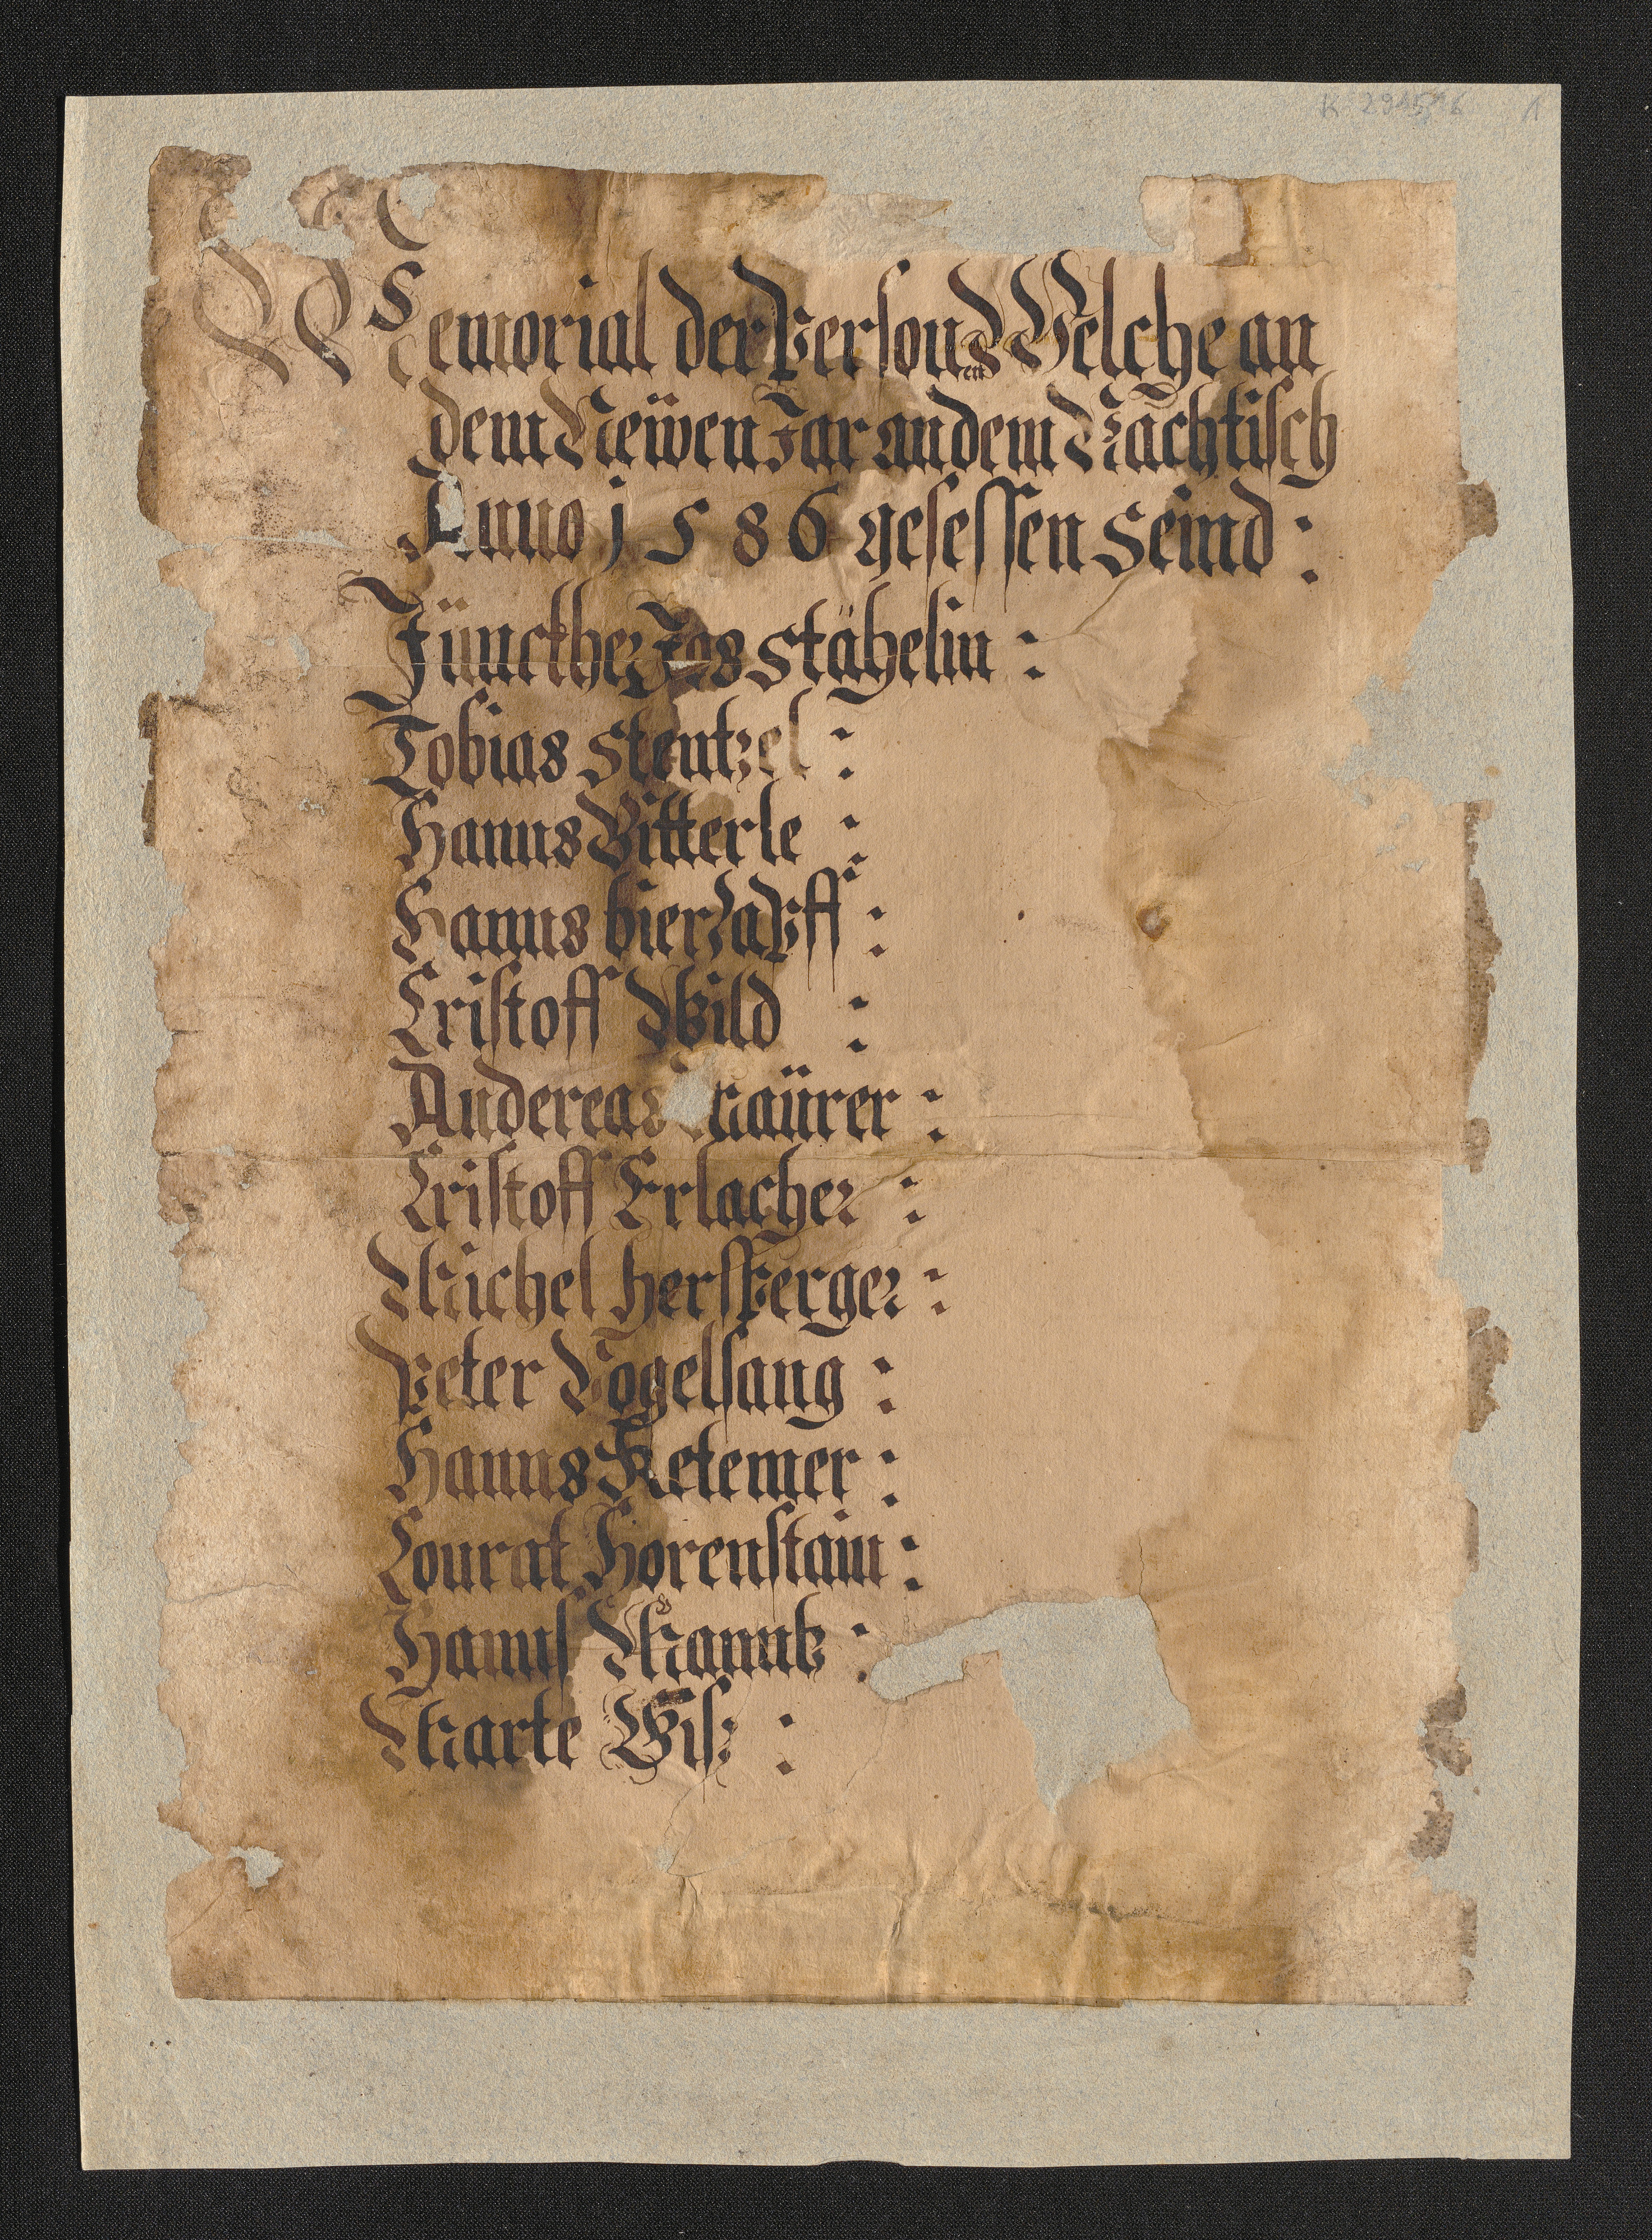 K 29456 1
Memorial der Personen Welche an
dem Neüwen Jar an dem Nachtisch
Anno 1586 gesessen seind :
Jüncther Jos stähelin :
Tobias stentzel :
Hanns Bitterle :
Hanns bierzapff :
Cristoff Wild :
Andereas Maürer :
Cristoff Erlacher :
Michel hersperger :
Peter Vogelsang :
Hanns Ketemer :
Conrat Horenstain :
Hanns Manntz :
Marte Wisz :